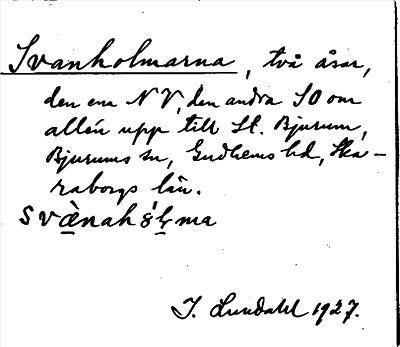 Svanholmarna, två åsar,
den ena NV, den andra SO om
allén upp till St. Bjurum,
Bjurums sn, Gudhems hd, Ska-
raborgs län.
svànahólma
J. Lundahl 1927.